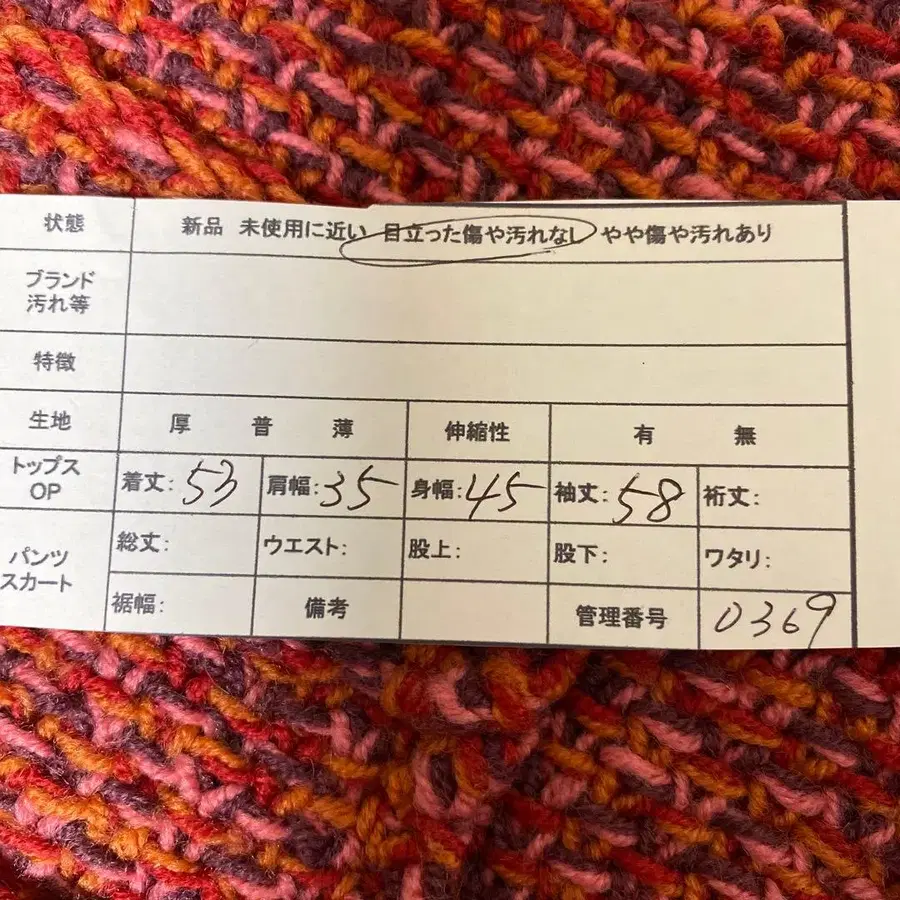 状態 新品 未使用に近い 目立った傷や汚れなし やや傷や汚れあり
ブランド
汚れ等
特徴
生地 厚 普 薄 伸縮性 有 無
トップス
OP
着丈:53 肩幅:35 身幅:45 袖丈:58 裄丈:
パンツ
スカート
総丈: ウエスト: 股上: 股下: ワタリ:
裾幅: 備考 管理番号 0369